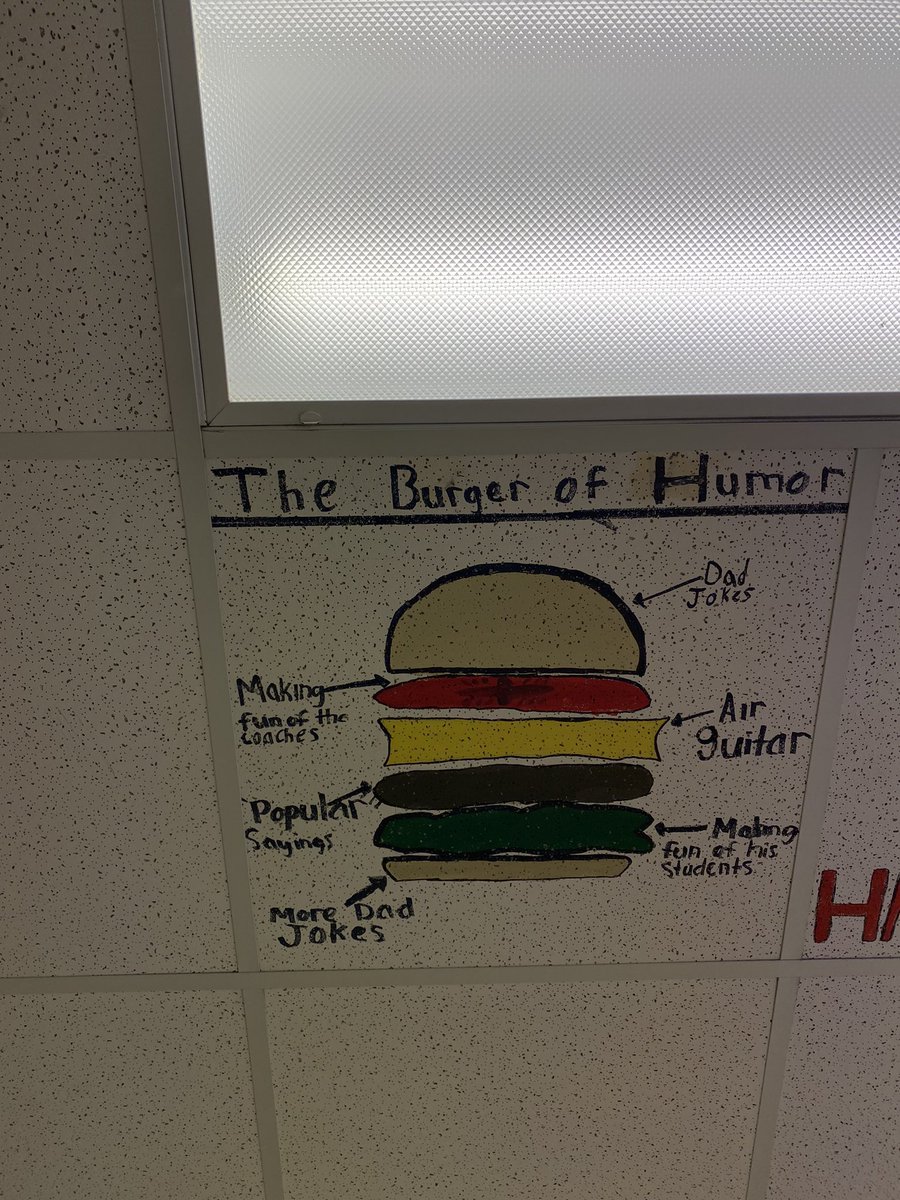 The Burger of Humor
Dad
Jokes
Making
fun of the
coaches
Air
guitar
Popular
Sayings
Making
fun of his
students
More Dad
Jokes
HA